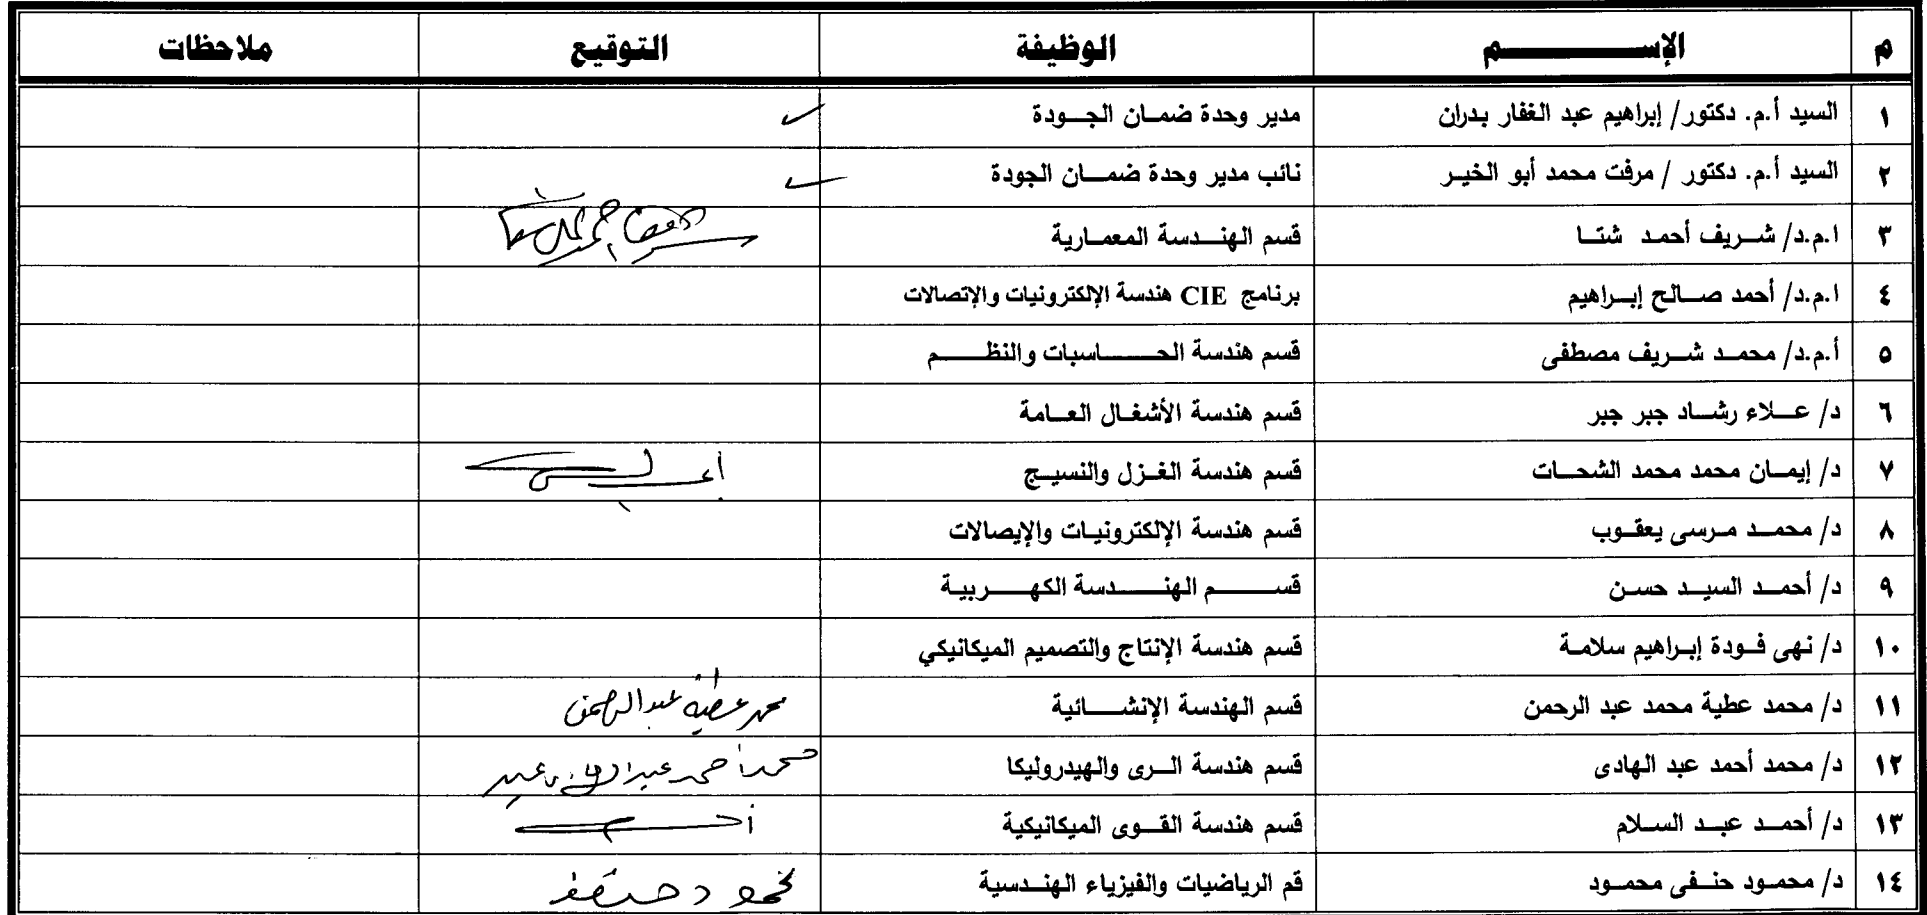 م الإســــم الوظيفة التوقيع ملاحظات
١ السيد أ.م. دكتور/ إبراهيم عبد الغفار بدران مدير وحدة ضمان الجودة
٢ السيد أ.م. دكتور / مرفت محمد أبو الخير نائب مدير وحدة ضمان الجودة
٣ ا.م.د/ شريف أحمد شتا قسم الهندسة المعمارية
٤ ا.م.د/ أحمد صالح إبراهيم برنامج CIE هندسة الإلكترونيات والإتصالات
٥ أ.م.د/ محمد شريف مصطفى قسم هندسة الحاسبات والنظم
٦ د/ علاء رشاد جبر جبر قسم هندسة الأشغال العامة
٧ د/ إيمان محمد محمد الشحات قسم هندسة الغزل والنسيج
٨ د/ محمد مرسى يعقوب قسم هندسة الإلكترونيات والإيصالات
٩ د/ أحمد السيد حسن قسم الهندسة الكهربية
١٠ د/ نهى فودة إبراهيم سلامة قسم هندسة الإنتاج والتصميم الميكانيكي
١١ د/ محمد عطية محمد عبد الرحمن قسم الهندسة الإنشائية محمد عطية عبد الرحمن
١٢ د/ محمد أحمد عبد الهادى قسم هندسة الرى والهيدروليكا محمد أحمد عبد الهادى عبيد
١٣ د/ أحمد عبد السلام قسم هندسة القوى الميكانيكية
١٤ د/ محمود حنفى محمود قم الرياضيات والفيزياء الهندسية محمود حنفى